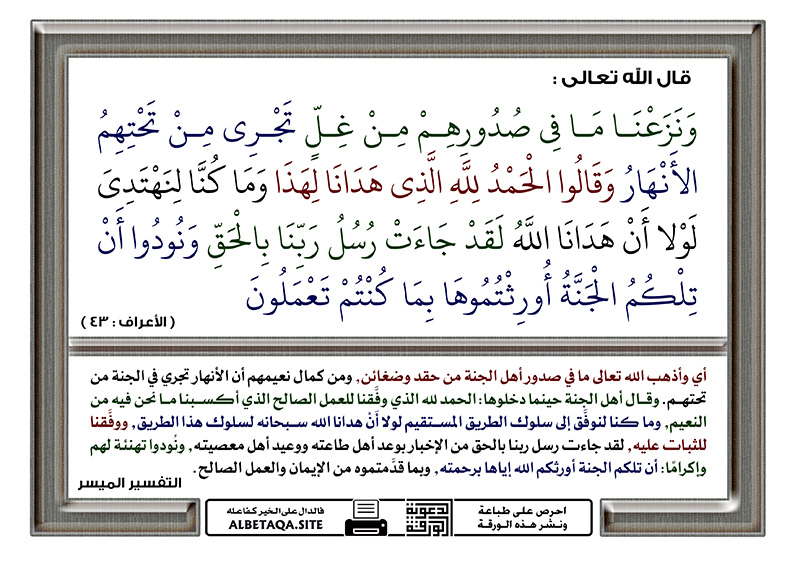 قال الله تعالى :
وَنَزَعْنَـا مَـا فِى صُدُورِهِـمْ مِـنْ غِـلٍّ تَجْـرِى مِـنْ تَحْتِهِمُ
الأَنْهَارُ وَقَالُوا الْحَمْدُ لِلَّهِ الَّذِى هَدَانَا لِهَذَا وَمَا كُنَّا لِنَهْتَدِىَ
لَوْلا أَنْ هَدَانَا اللَّهُ لَقَدْ جَاءَتْ رُسُلُ رَبِّنَا بِالْحَقِّ وَنُودُوا أَنْ
تِلْكُمُ الْجَنَّةُ أُورِثْتُمُوهَا بِمَا كُنْتُمْ تَعْمَلُونَ
( الأعراف : ٤٣ )
أي وأذهب الله تعالى ما في صدور أهل الجنة من حقد وضغائن, ومن كمال نعيمهم أن الأنهار تجري في الجنة من
تحتهـم. وقـال أهل الجنة حينما دخلوها: الحمد لله الذي وفَّقنا للعمل الصالح الذي أكـسبنا مـا نحن فيه من
النعيم, وما كنا لنوفَّق إلى سلوك الطريق المستقيم لولا أنْ هدانا الله سبحانه لسلوك هذا الطريق, ووفَّقنا
للثبات عليه, لقد جاءت رسل ربنا بالحق من الإخبار بوعد أهل طاعته ووعيد أهل معصيته, ونُودوا تهنئة لهم
وإكرامًا: أن تلكم الجنة أورثكم الله إياها برحمته, وبما قدَّمتموه من الإيمان والعمل الصالح.
التفسير الميسر
احرص على طباعة
ونشر هذه الورقة
الدعوية
الورقة
فالدال على الخير كفاعله
ALBETAQA.SITE